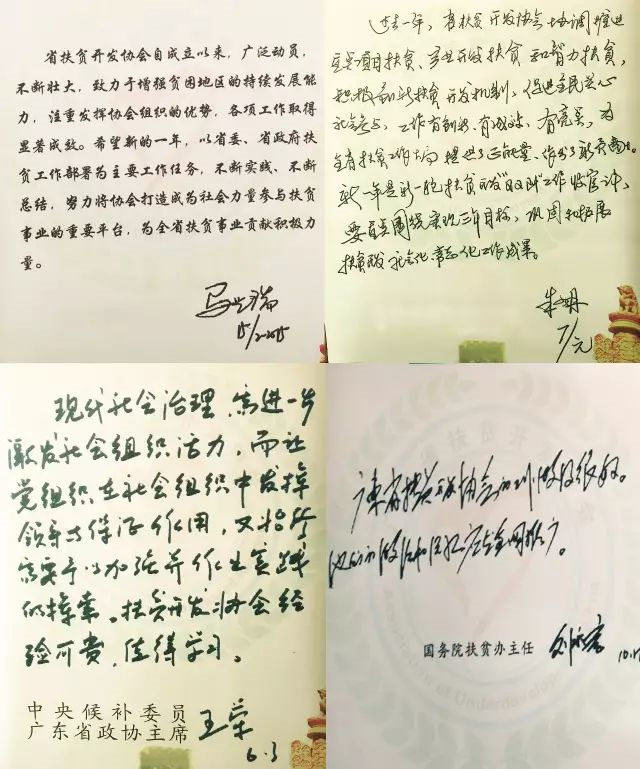 省扶贫开发协会自成立以来，广泛动员，
不断壮大，致力于增强贫困地区的持续发展能
力，注重发挥协会组织的优势，各项工作取得
显著成效。希望新的一年，以省委、省政府扶
贫工作部署为主要工作任务，不断实践、不断
总结，努力将协会打造成为社会力量参与扶贫
事业的重要平台，为全省扶贫事业贡献积极力
量。
马兴瑞
15/2-2015
过去一年，省扶贫开发协会协调推进
产业开发扶贫和智力扶贫，
积极创新扶贫开发机制，促进全民关心
工作有创新、有成效、有亮点，为
全省扶贫工作大局提供了正能量、作出了新贡献。
新一年是新一轮扶贫开发“双到”工作收官之年，
要围绕实现三年目标，巩固和拓展
扶贫开发社会化常态化工作成果。
7/元
现代社会治理，需进一步
激发社会组织活力，而让
党组织在社会组织中发挥
领导与保证作用，又恰恰
需要予以加强并作出实践
的探索。扶贫开发协会经
验可贵，值得学习。
中央候补委员
广东省政协主席 王荣
6.3
广东省扶贫开发协会的工作做得很好。
他们的做法和经验应在全国推广。
国务院扶贫办主任 刘永富